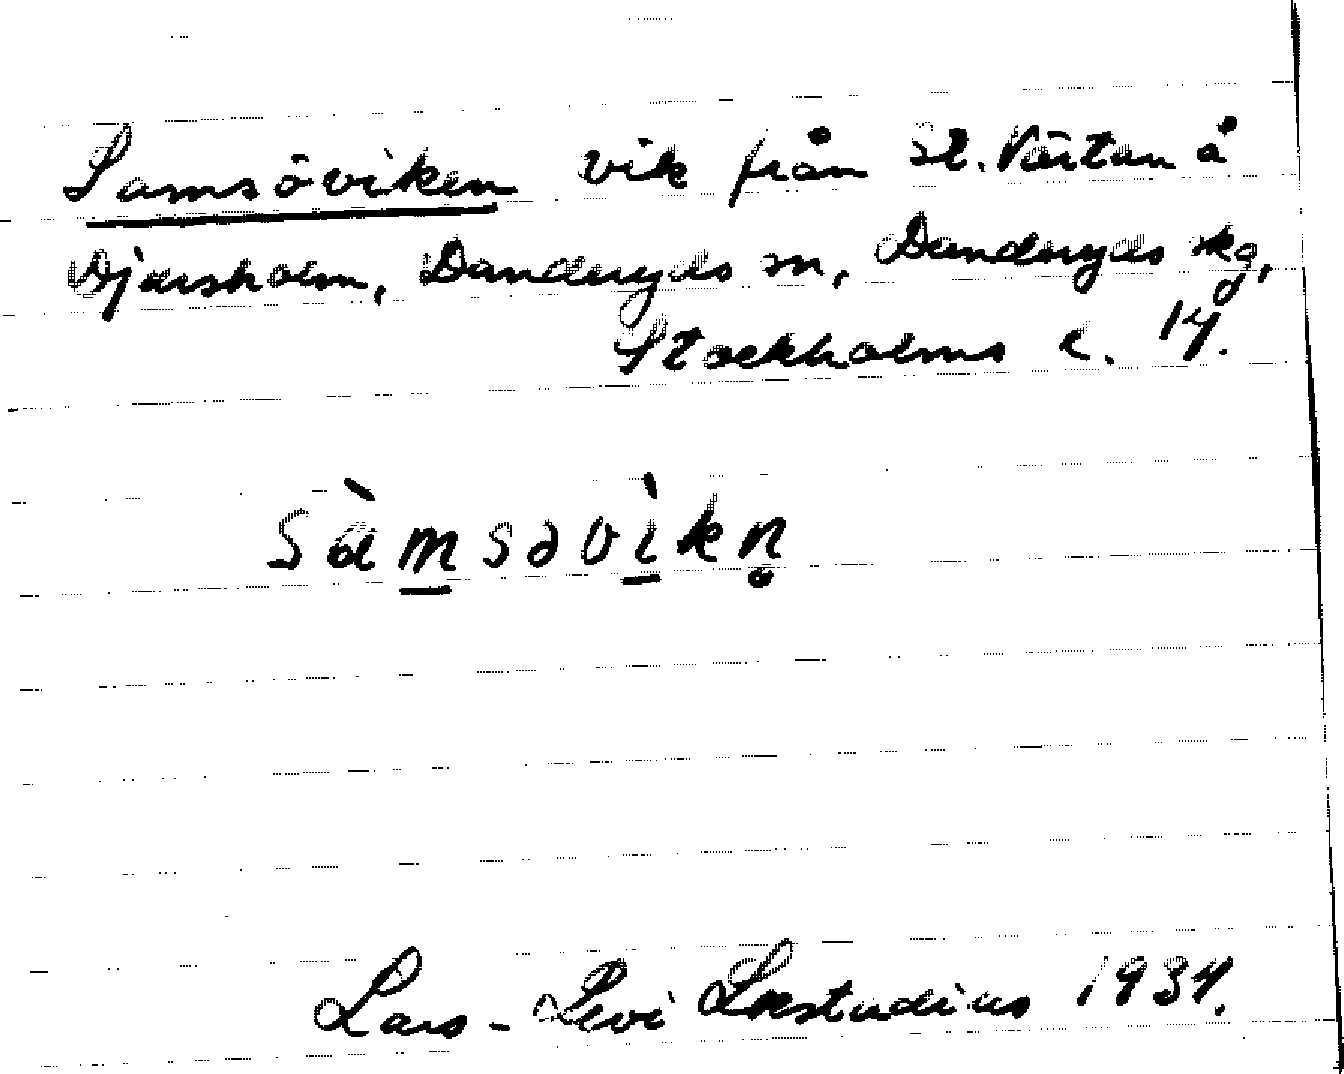 Samsöviken vik från St. Värtan å
Djursholm, Danderyds sn, Danderyds skg,
Stockholms l. 14.
sàmsəvìkn̥
Lars-Levi Læstadius 1934.